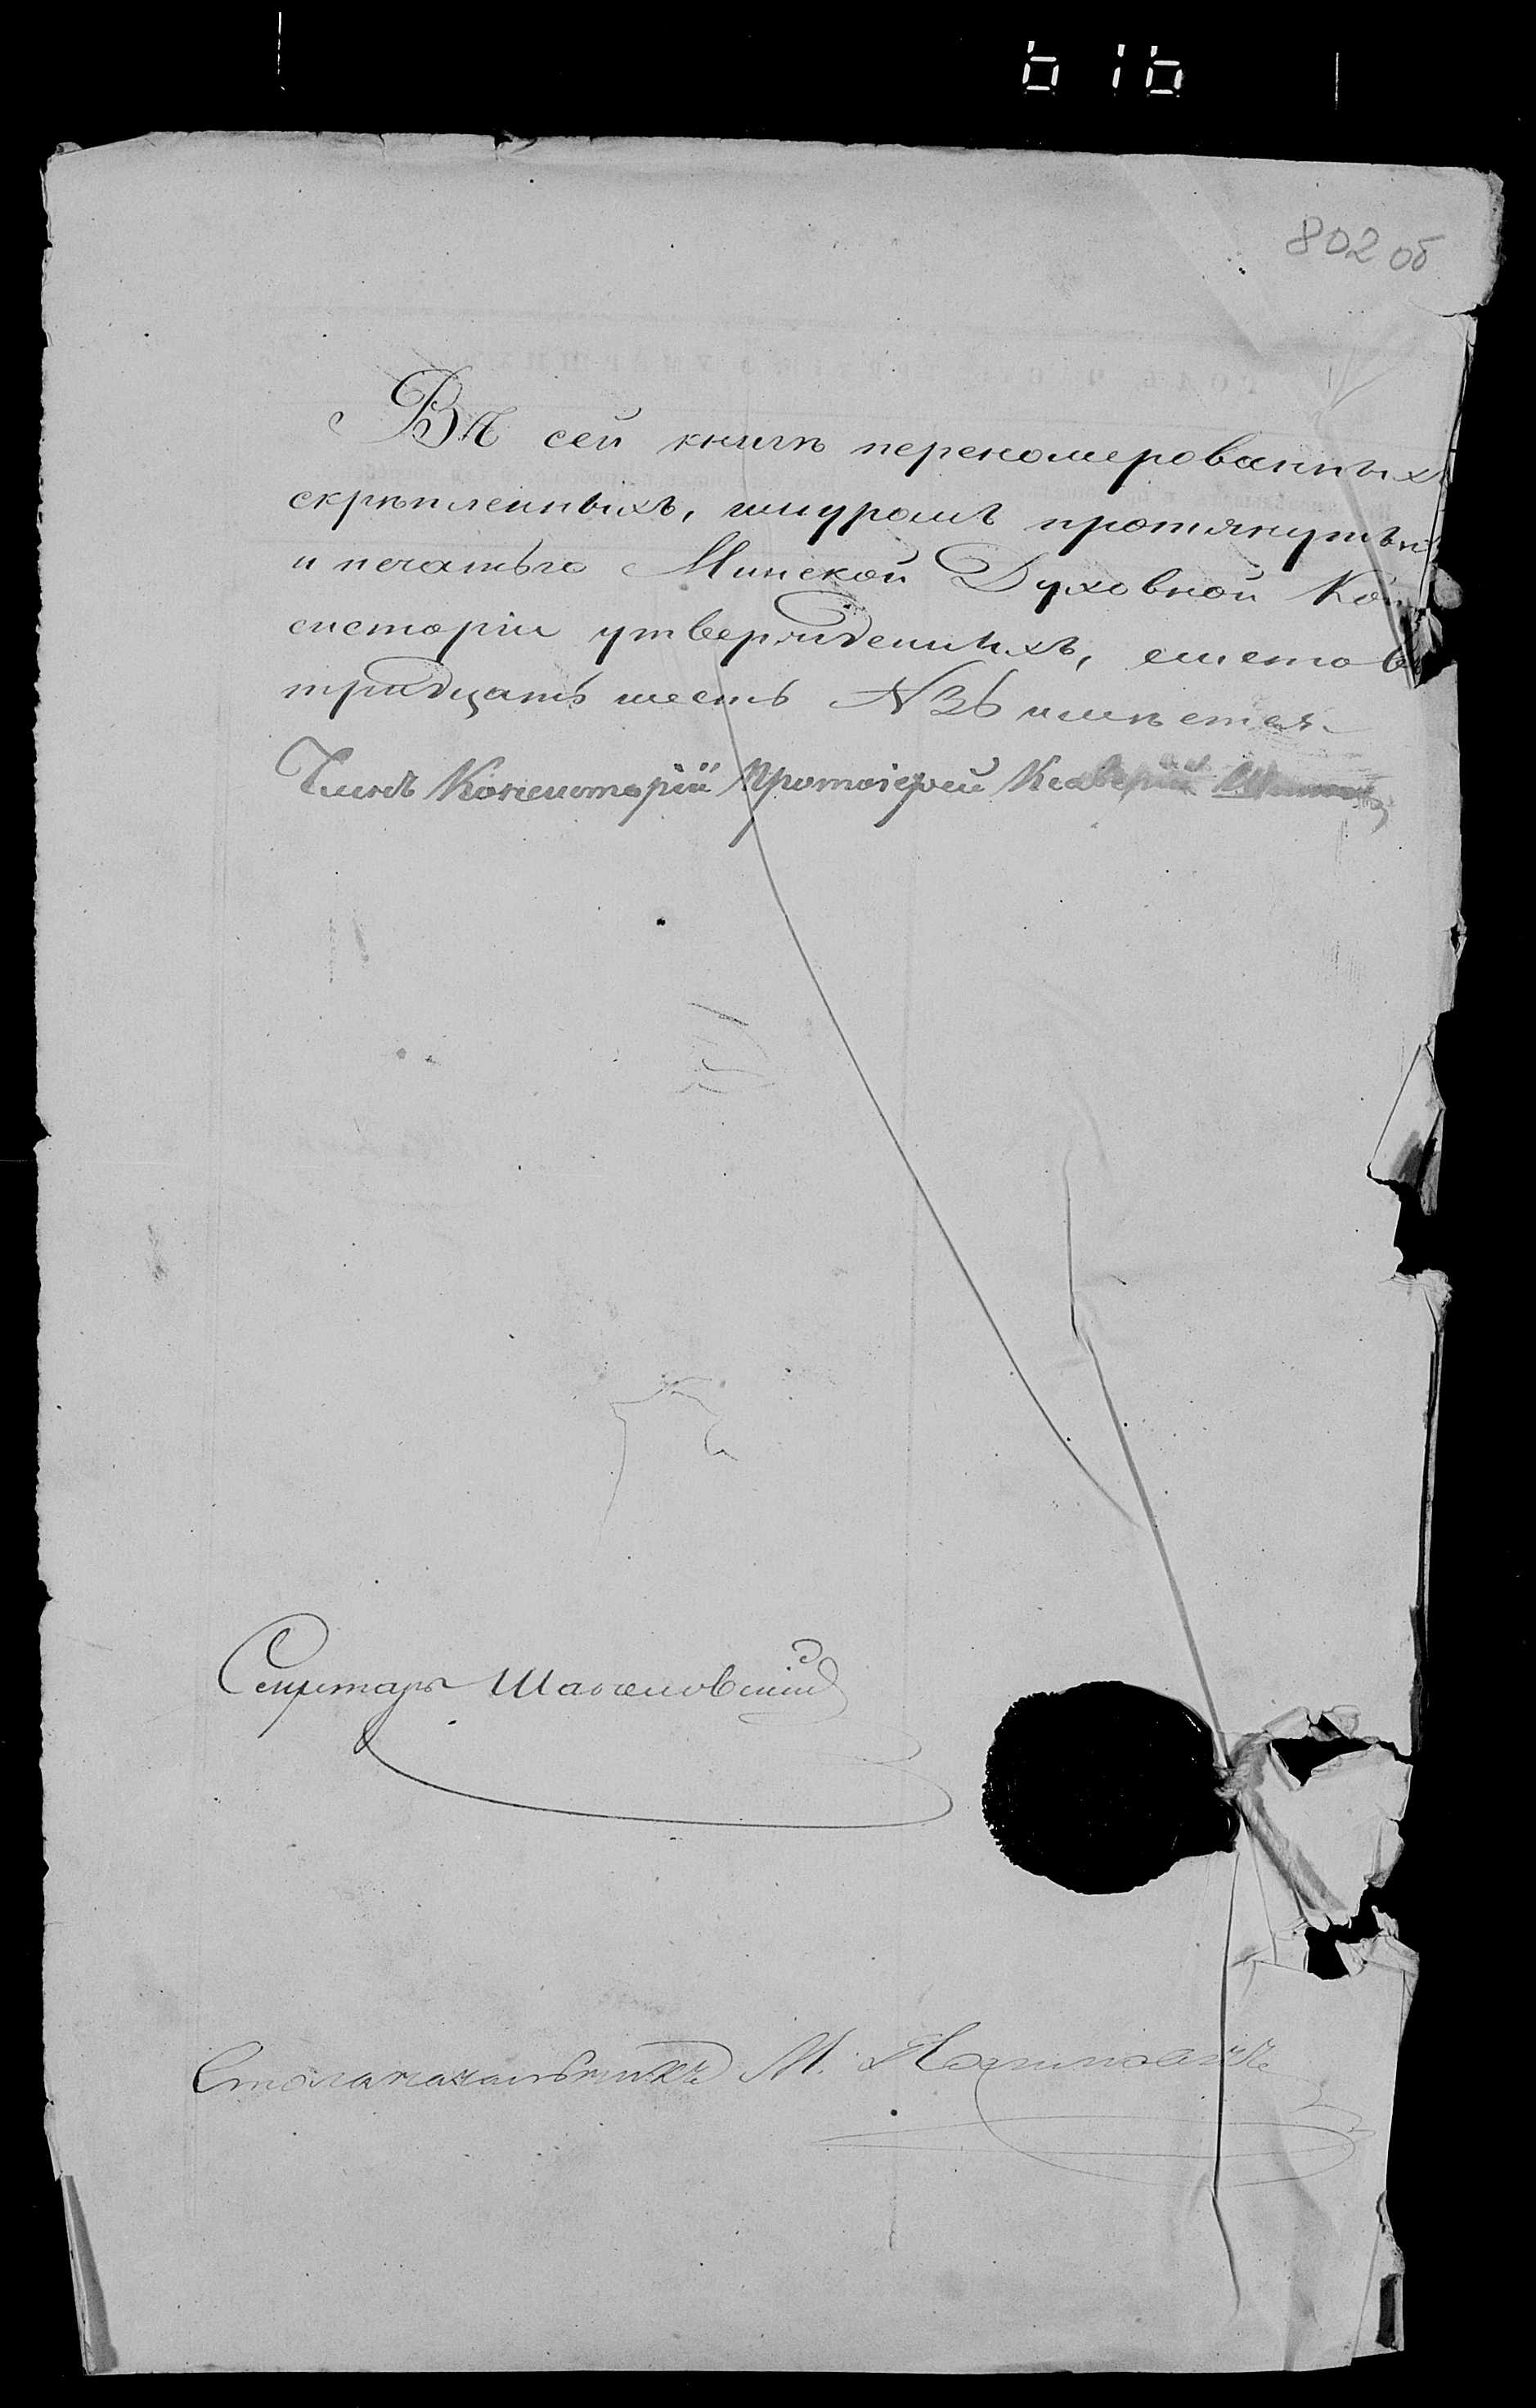 802 об
Въ сей книгѣ перономерованныхъ
скрѣпленныхъ, шнуромъ протянутыхъ
и печатью Минской Духовной Кон
систоріи утвержденныхъ, листовъ
тридцать шесть №36 имѣется.
Членъ Консисторіи Протоіерей
Секретарь
Столоначальникъ М.